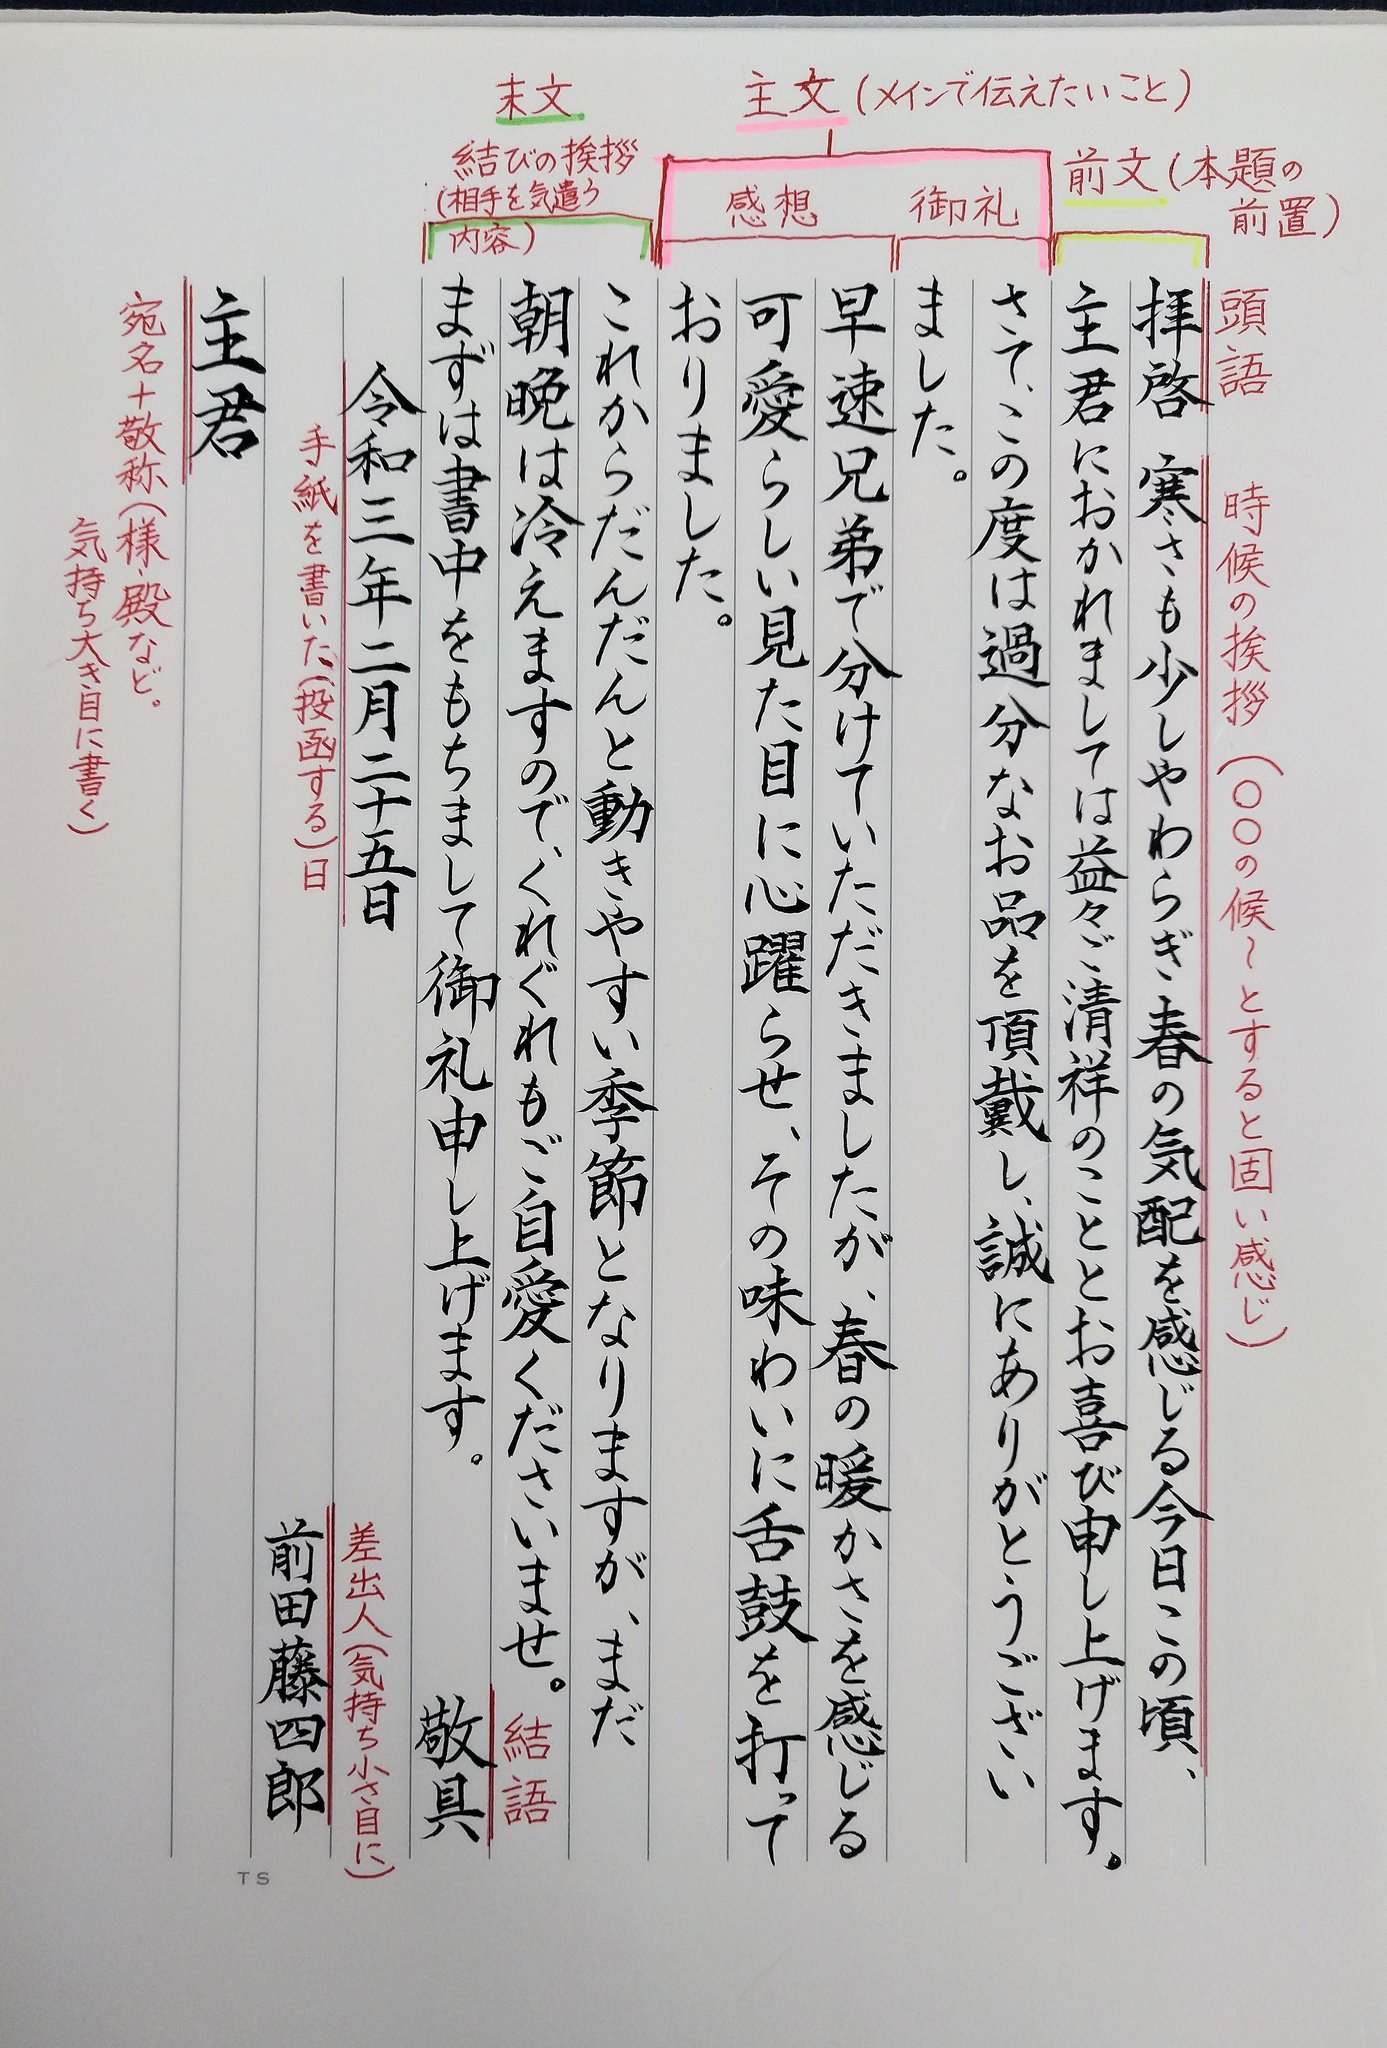 主文(メインで伝えたいこと)
末文
前文(本題の
前置)
感想
御礼
結びの挨拶
(相手を気遣う
内容)
頭語
時候の挨拶(〇〇の候~とすると固い感じ)
拝啓 寒さも少しやわらぎ春の気配を感じる今日この頃、
主君におかれましては益々ご清祥のこととお喜び申し上げます。
さて、この度は過分なお品を頂戴し、誠にありがとうござい
ました。
早速兄弟で分けていただきましたが、春の暖かさを感じる
可愛らしい見た目に心躍らせ、その味わいに舌鼓を打って
おりました。
これからだんだんと動きやすい季節となりますが、まだ
朝晩は冷えますので、くれぐれもご自愛くださいませ。
結語
まずは書中をもちまして御礼申し上げます。 敬具
令和三年二月二十五日
手紙を書いた(投函する)日
差出人(気持ち小さ目に)
前田藤四郎
主君
宛名+敬称(様、殿など。
気持ち大き目に書く)
TS